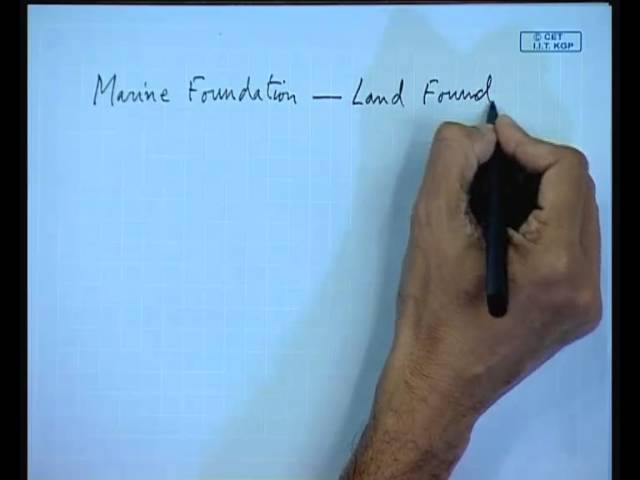 © CET
I.I.T. KGP
Marine Foundation — Land Found